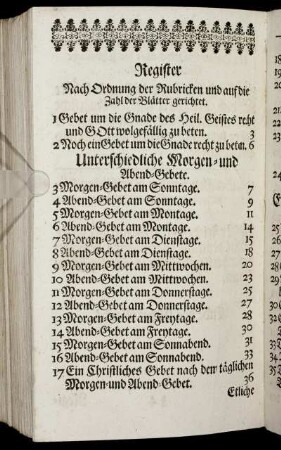 Register
Nach Ordnung der Rubricken und auf die
Zahl der Blätter gerichtet.
1 Gebet um die Gnade des Heil. Geistes recht
und GOtt wolgefällig zu beten. 3
2 Noch ein Gebet um die Gnade recht zu betn. 6
Unterschiedliche Morgen- und
Abend-Gebete.
3 Morgen-Gebet am Sonntage. 7
4 Abend-Gebet am Sonntage. 9
5 Morgen-Gebet am Montage. 11
6 Abend-Gebet am Montage. 14
7 Morgen-Gebet am Dienstage. 15
8 Abend-Gebet am Dienstage. 18
9 Morgen-Gebet am Mittwochen. 20
10 Abend-Gebet am Mittwochen. 23
11 Morgen-Gebet am Donnerstage. 25
12 Abend-Gebet am Donnerstage. 27
13 Morgen-Gebet am Freytage. 28
14 Abend-Gebet am Freytage. 30
15 Morgen-Gebet am Sonnabend. 31
16 Abend-Gebet am Sonnabend. 33
17 Ein Christliches Gebet nach dem täglichen
Morgen-und Abend-Gebet. 36
Etliche